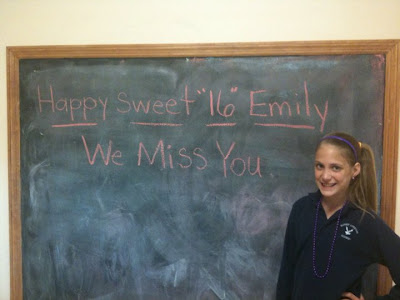 Happy Sweet "16" Emily
We Miss You